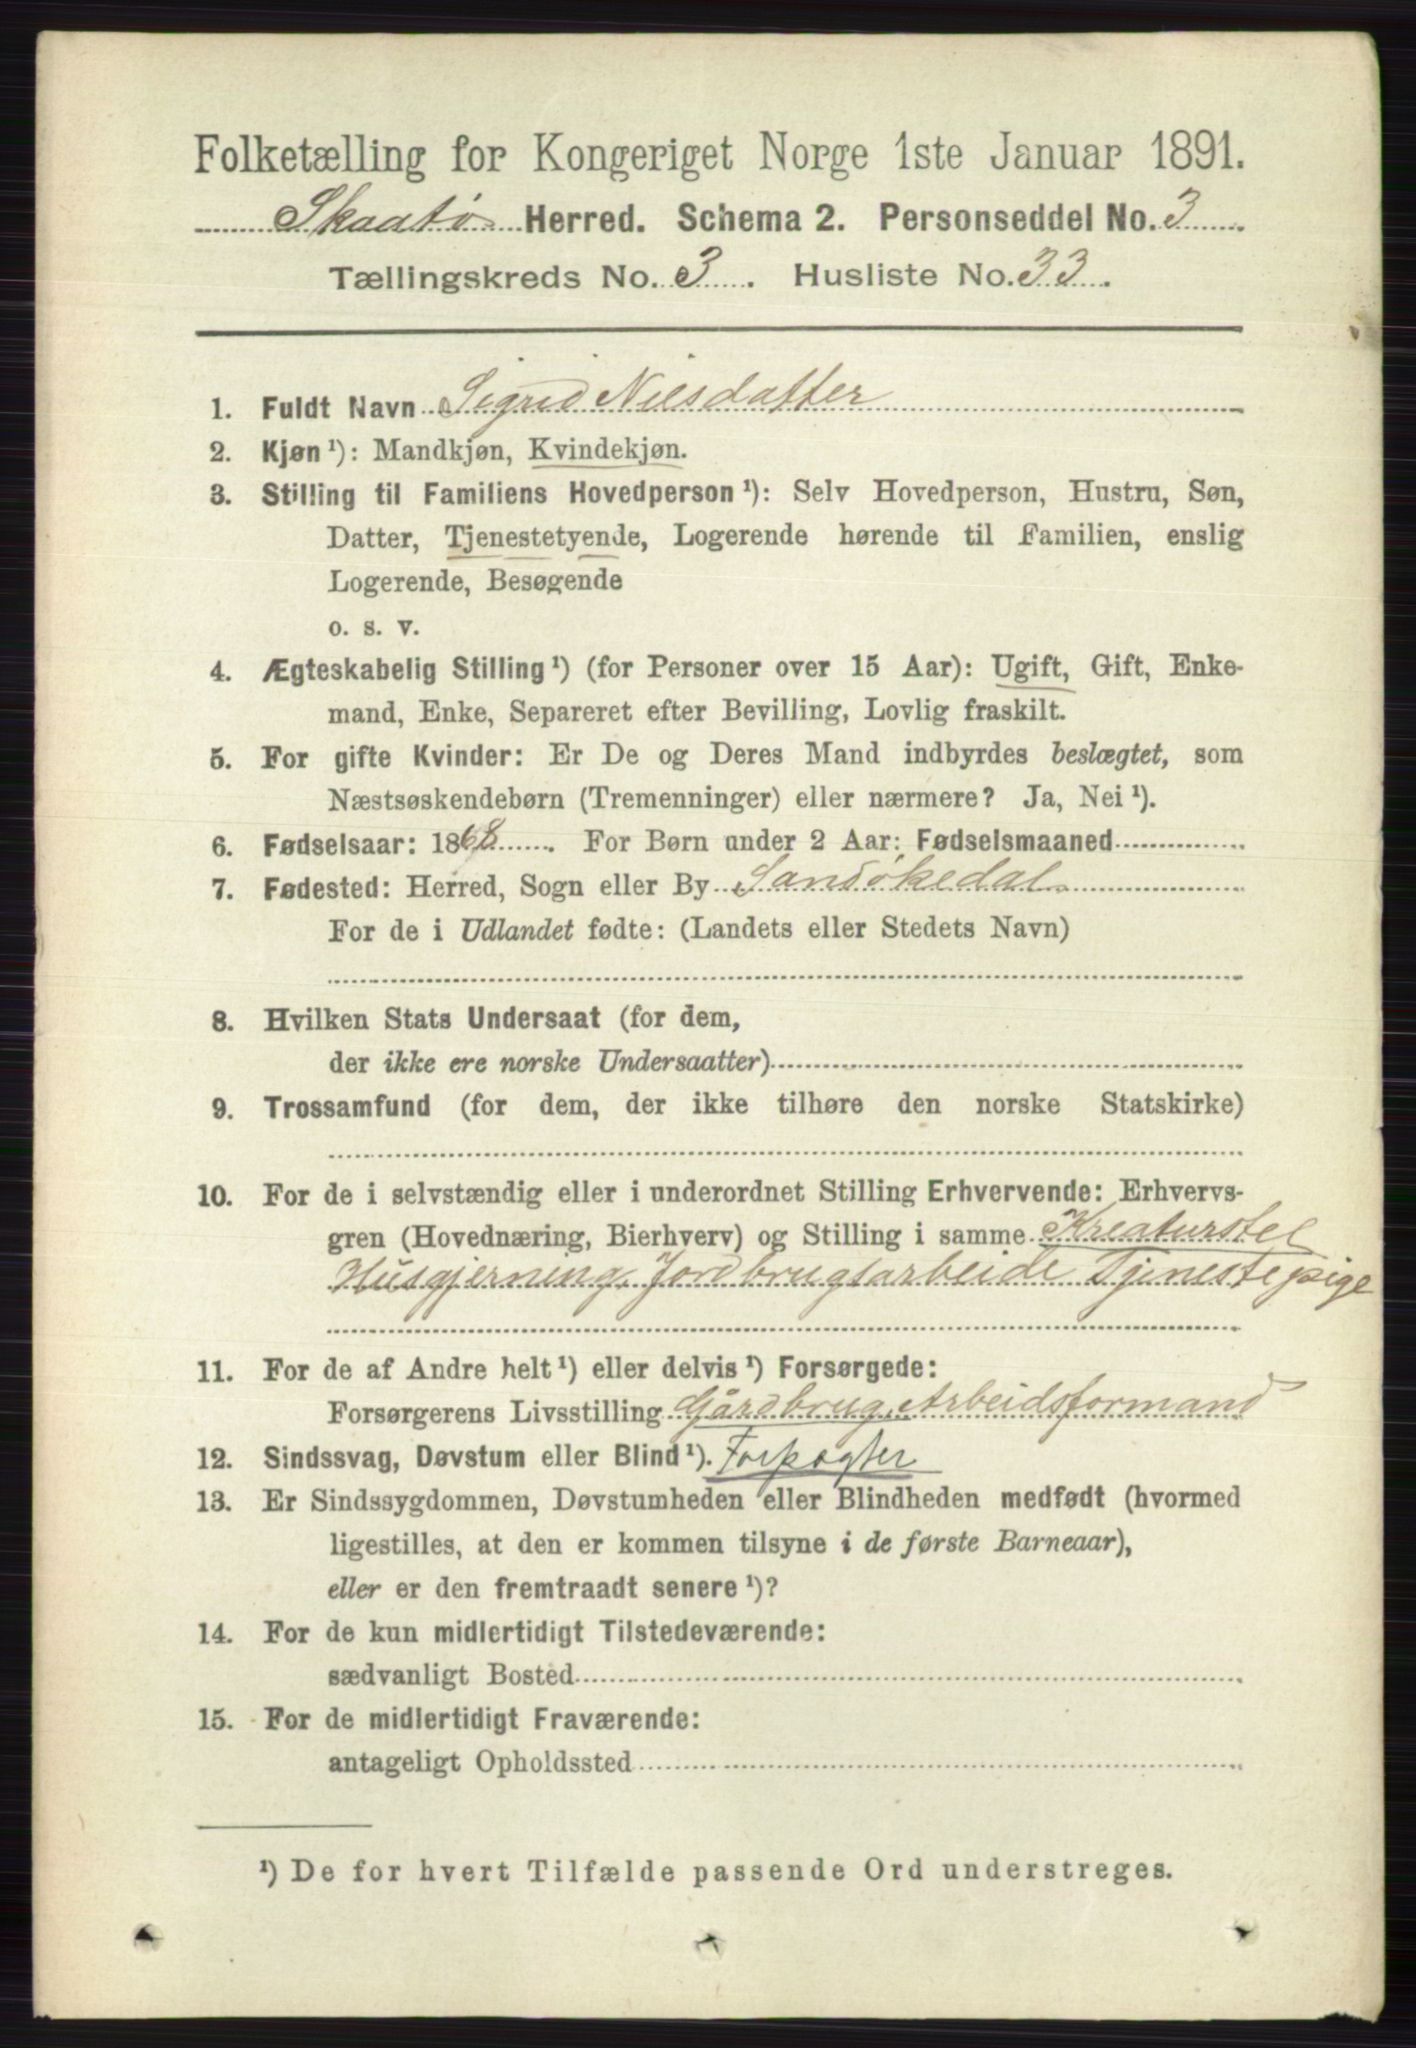 Folketælling for Kongeriget Norge 1ste Januar 1891.
Skaatø Herred. Schema 2. Personseddel No. 3
Tællingskreds No. 3. Husliste No. 33.
1. Fuldt Navn Sigrid Nilsdatter
2. Kjøn ¹): Mandkjøn, Kvindekjøn.
3. Stilling til Familiens Hovedperson ¹): Selv Hovedperson, Hustru, Søn,
Datter, Tjenestetyende, Logerende hørende til Familien, enslig
Logerende, Besøgende
o. s. v.
4. Ægteskabelig Stilling ¹) (for Personer over 15 Aar): Ugift, Gift, Enke-
mand, Enke, Separeret efter Bevilling, Lovlig fraskilt.
5. For gifte Kvinder: Er De og Deres Mand indbyrdes beslægtet, som
Næstsøskendebørn (Tremenninger) eller nærmere? Ja, Nei ¹).
6. Fødselsaar: 1868. For Børn under 2 Aar: Fødselsmaaned
7. Fødested: Herred, Sogn eller By Sandøkedal
For de i Udlandet fødte: (Landets eller Stedets Navn)
8. Hvilken Stats Undersaat (for dem,
der ikke ere norske Undersaatter)
9. Trossamfund (for dem, der ikke tilhøre den norske Statskirke)
10. For de i selvstændig eller i underordnet Stilling Erhvervende: Erhvervs-
gren (Hovednæring, Bierhverv) og Stilling i samme Kreaturstel
Husgjerning, Jordbrugsarbeide Tjenestepige
11. For de af Andre helt ¹) eller delvis ¹) Forsørgede:
Forsørgerens Livsstilling Gårdbrug, Arbeidsformand
12. Sindssvag, Døvstum eller Blind ¹). Forpagter
13. Er Sindssygdommen, Døvstumheden eller Blindheden medfødt (hvormed
ligestilles, at den er kommen tilsyne i de første Barneaar),
eller er den fremtraadt senere ¹)?
14. For de kun midlertidigt Tilstedeværende:
sædvanligt Bosted
15. For de midlertidigt Fraværende:
antageligt Opholdssted
¹) De for hvert Tilfælde passende Ord understreges.